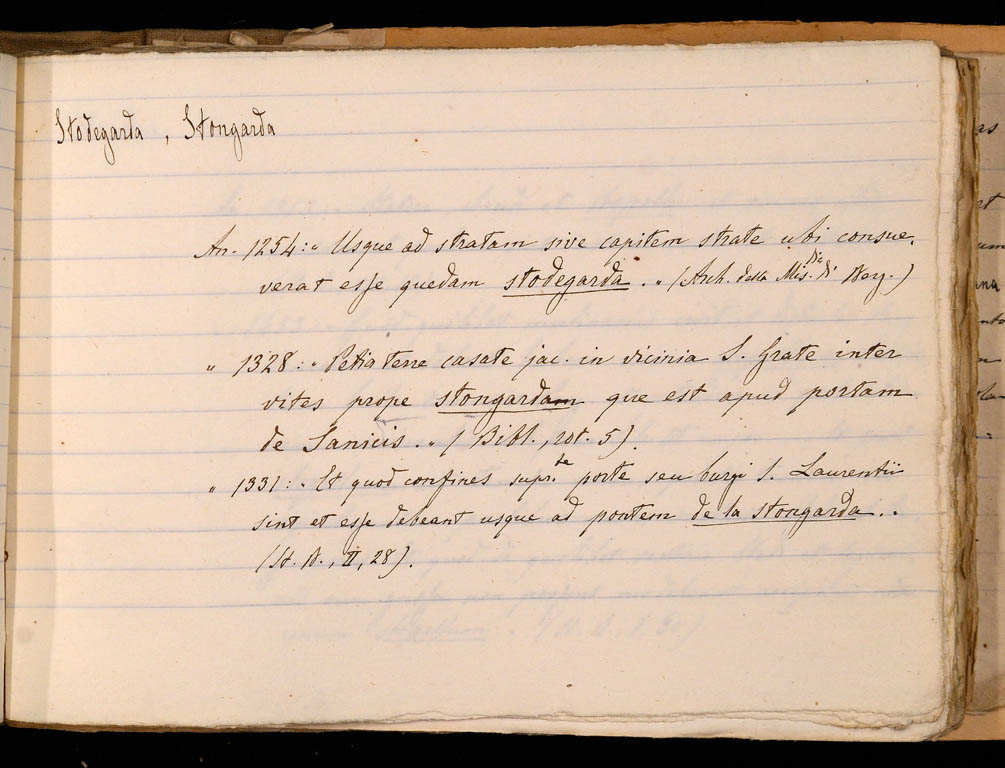 Stodegarda, Stongarda
An. 1254: „ Usque ad stratam sive capitem strate ubi consue-
verat esse quedam stodegarda. „ (Arch. della Mis.dia di Berg.)
„ 1328: „ Petia terre casate jac. in vicinia S. Grate inter
vites prope stongardam que est apud portam
de Sanicis. „ (Bibl., rot. 5).
„ 1331: „ Et quod confines supr.te porte seu burgi S. Laurentii
sint et esse debeant usque ad pontem de la stongarda. „
(St. A., II, 28).